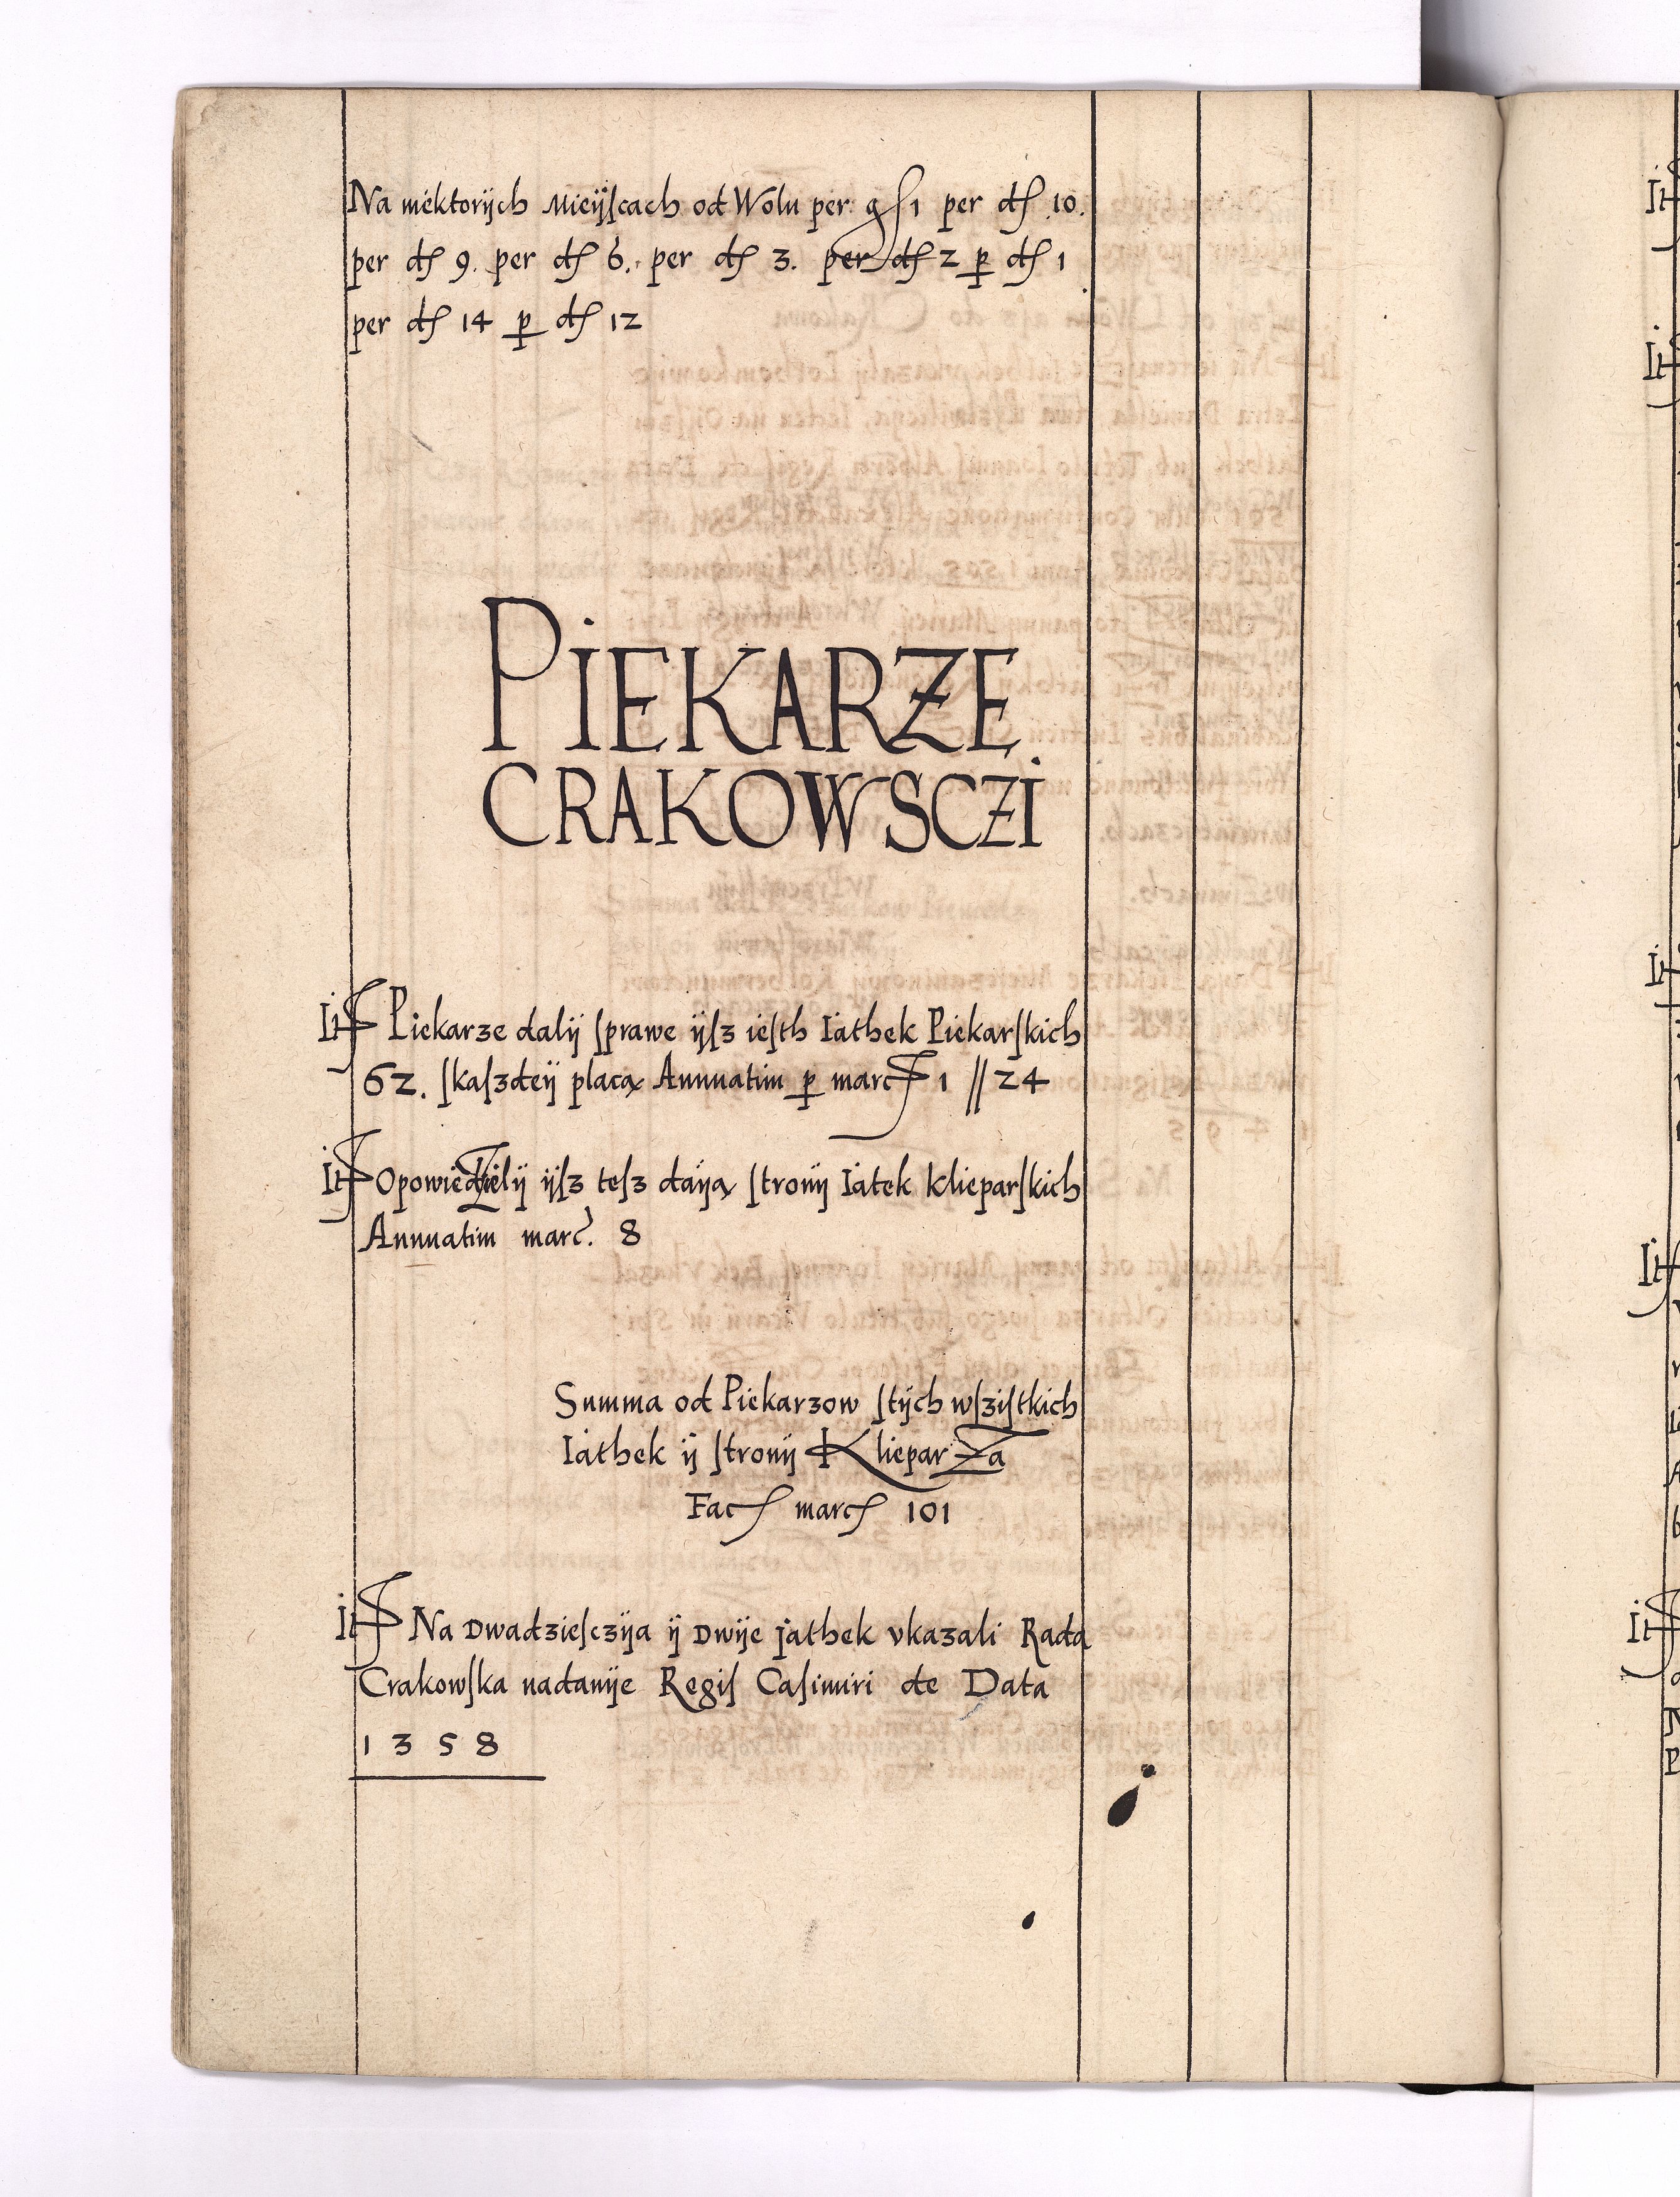 Na niektorÿch Mieÿſcach od Wolu per gſ 1 per dſ 10.
per dſ 9. per dſ 6. per dſ 3. per dſ 2 p dſ 1
per dſ 14 p dſ 12
PIEKARZE
CRAKOWSCZI
It Piekarze dalÿ ſprawe ÿſz ieſth Iathek Piekarſkich
62. ſkaſzdeÿ placą Annuatim p marc 1 // 24
It Opowiedzielÿ ÿſz teſz daÿą ſtronÿ Iatek Klieparſkich
Annuatim marc. 8
Summa od Piekarzow ſtÿch wſziſtkich
Iathek ÿ ſtronÿ Klieparza
Fac marc 101
It Na Dwadzieſczÿa ÿ Dwÿe jathek vkazali Rada
Crakowſka nadanÿe Regiſ Caſimiri de Data
1358